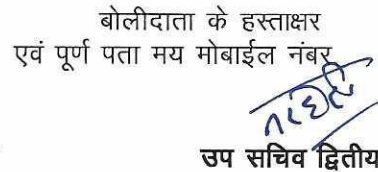 बोलीदाता के हस्ताक्षर
एवं पूर्ण पता मय मोबाईल नंबर
उप सचिव द्वितीय